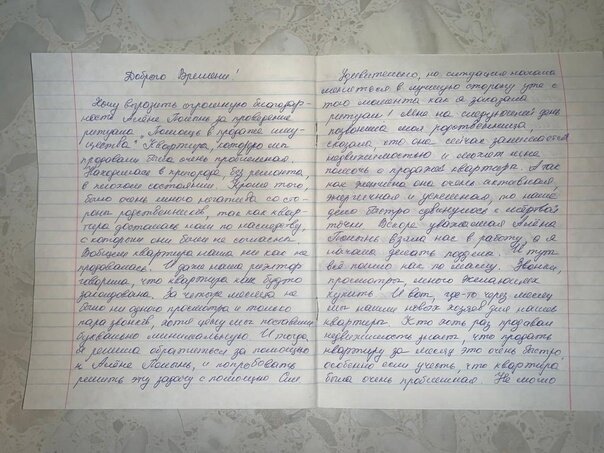 Доброго Времени!
Хочу выразить огромную благодар-
ность Алёне Полынь за проведение
ритуала „Помощь в продаже иму-
щества". Квартира, которую мы
продавали была очень проблемная.
Находилась в пригороде, без ремонта,
в плохом состоянии. Кроме того,
было очень много негатива со сто-
роны родственников, так как квар-
тира досталась нам по наследству,
с которым они были не согласны.
Вобщем квартира наша ни как не
продавалась. И даже наша риэлтор
говорила, что квартира как будто
заколдована. За четыре месяца не
было ни одного просмотра и только
пара звонков, хотя цену мы поставили
буквально минимальную. И тогда
я решила обратиться за помощью
к Алёне Полынь, и попробовать
решить эту задачу с помощью Сил
Удивительно, но ситуация начала
меняться в лучшую сторону уже с
того момента как я заказала
ритуал! Мне на следующий день
позвонила моя родственница,
сказала, что она сейчас занимается
недвижимостью и может мне
помочь с продажей квартиры. А так
как женщина она очень активная,
энергичная и успешная, то наше
дело быстро сдвинулось с мёртвой
точки. Вскоре уважаемая Алёна
Полынь взяла нас в работу, а я
начала делать подселы. И тут
всё пошло как по маслу. Звонки,
просмотры, много желающих
купить. И вот, где-то через месяц
мы нашли новых хозяев для нашей
квартиры. Кто хоть раз продавал
недвижимость знает, что продать
квартиру за месяц это очень быстро,
особенно если учесть, что квартира
была очень проблемная. Не могло